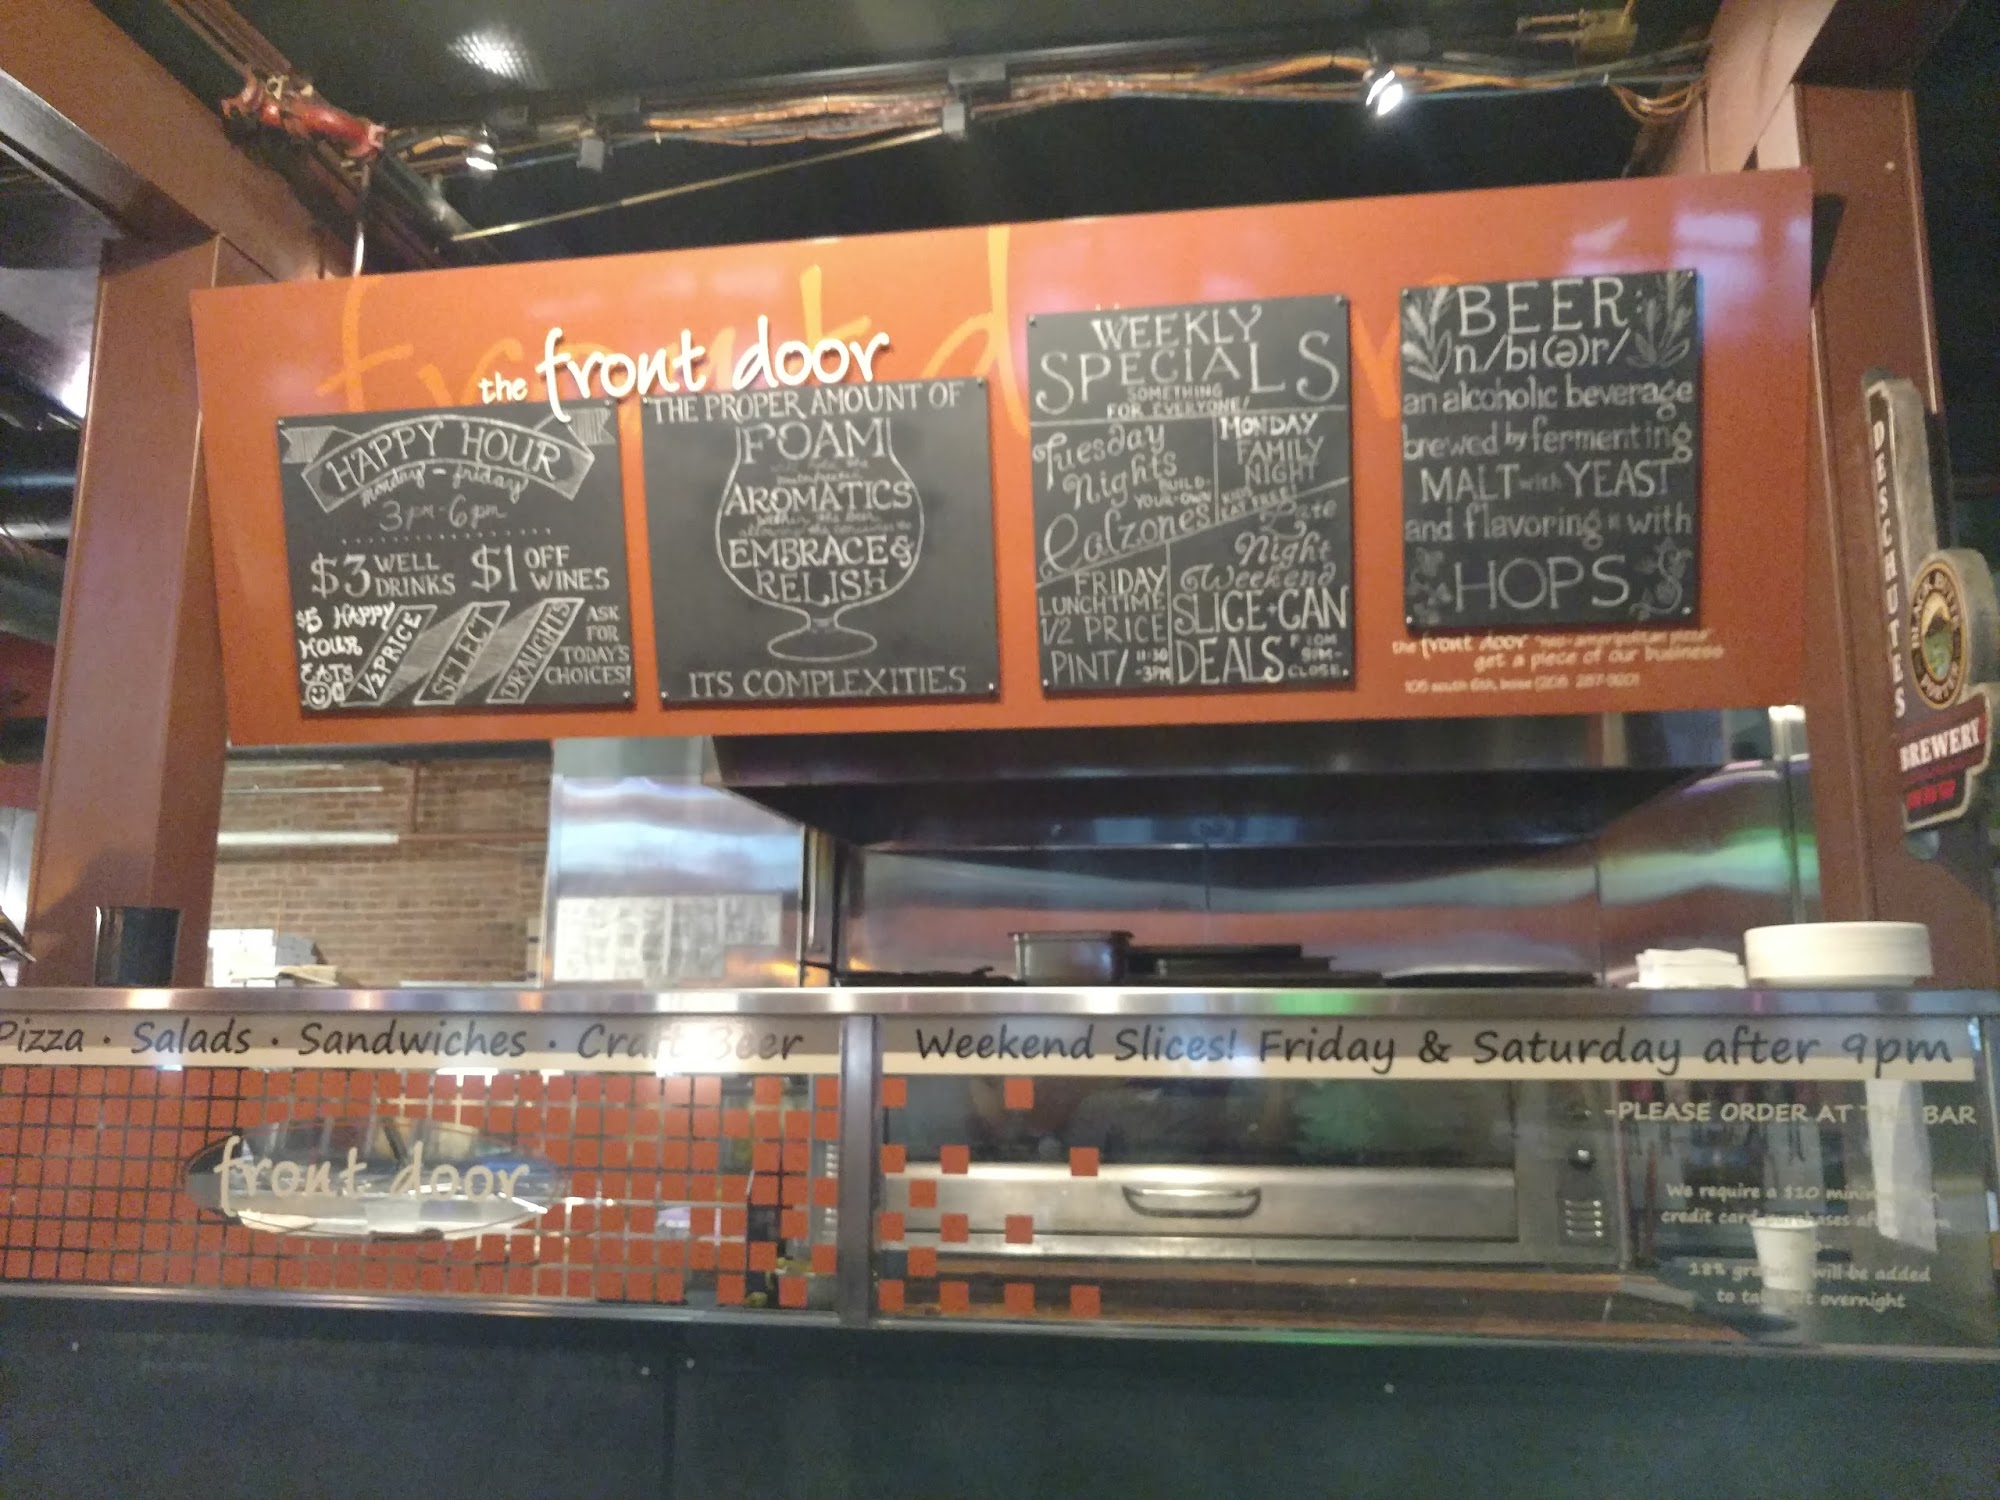 the front door
HAPPY HOUR
monday - friday
3pm-6pm
$3 WELL DRINKS $1 OFF WINES
$5 HAPPY
HOUR
EATS
1/2 PRICE
SELECT
DRAUGHTS
ASK
FOR
TODAY'S
CHOICES!
THE PROPER AMOUNT OF
FOAM
AROMATICS
EMBRACE &
RELISH
ITS COMPLEXITIES
WEEKLY
SPECIALS
SOMETHING
FOR EVERYONE!
Tuesday
Nights
BUILD-
YOUR-OWN
Calzones
MONDAY
FAMILY
NIGHT
KIDS
EAT FREE!
FRIDAY
LUNCHTIME
1/2 PRICE
PINT/ 11:30
-3PM
Late
Night
Weekend
SLICE+CAN
DEALS FROM
9PM-
CLOSE.
BEER:
n/bi(ə)r/
an alcoholic beverage
brewed by fermenting
MALT with YEAST
and flavoring it with
HOPS
the front door
get a piece of our business
DESCHUTES
BLACK BUTTE
PORTER
BREWERY
Pizza · Salads · Sandwiches · Craft Beer
Weekend Slices! Friday & Saturday after 9pm
front door
-PLEASE ORDER AT BAR
We require a $10
credit card
18% will be added
to overnight